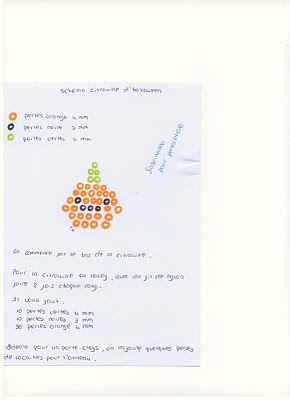 schema citrouille d'halloween
perles orange 4 mm
perles noire 3 mm
perles vertes 4 mm
Sabrinette
pour perlesplace
On commence par le bas de la citrouille.
Pour la citrouille en 3D, avec du fil de nylon
faire 2 fois chaque rang.
Il vous faut.
10 perles vertes 4 mm
10 perles noires 3 mm
56 perles orange 4 mm
Idéale pour un porte-clefs, on rajoute quelques perles
de rocailles pour l'anneau.